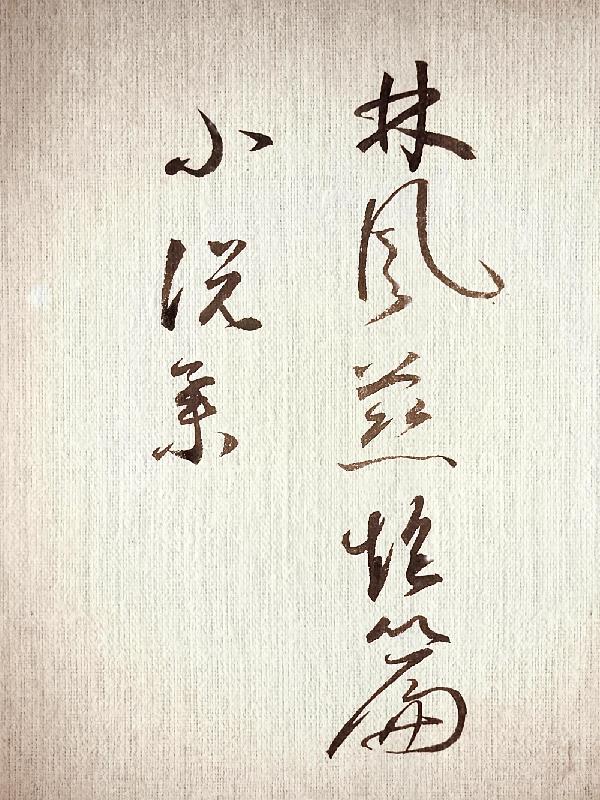 林风慈短篇
小说集